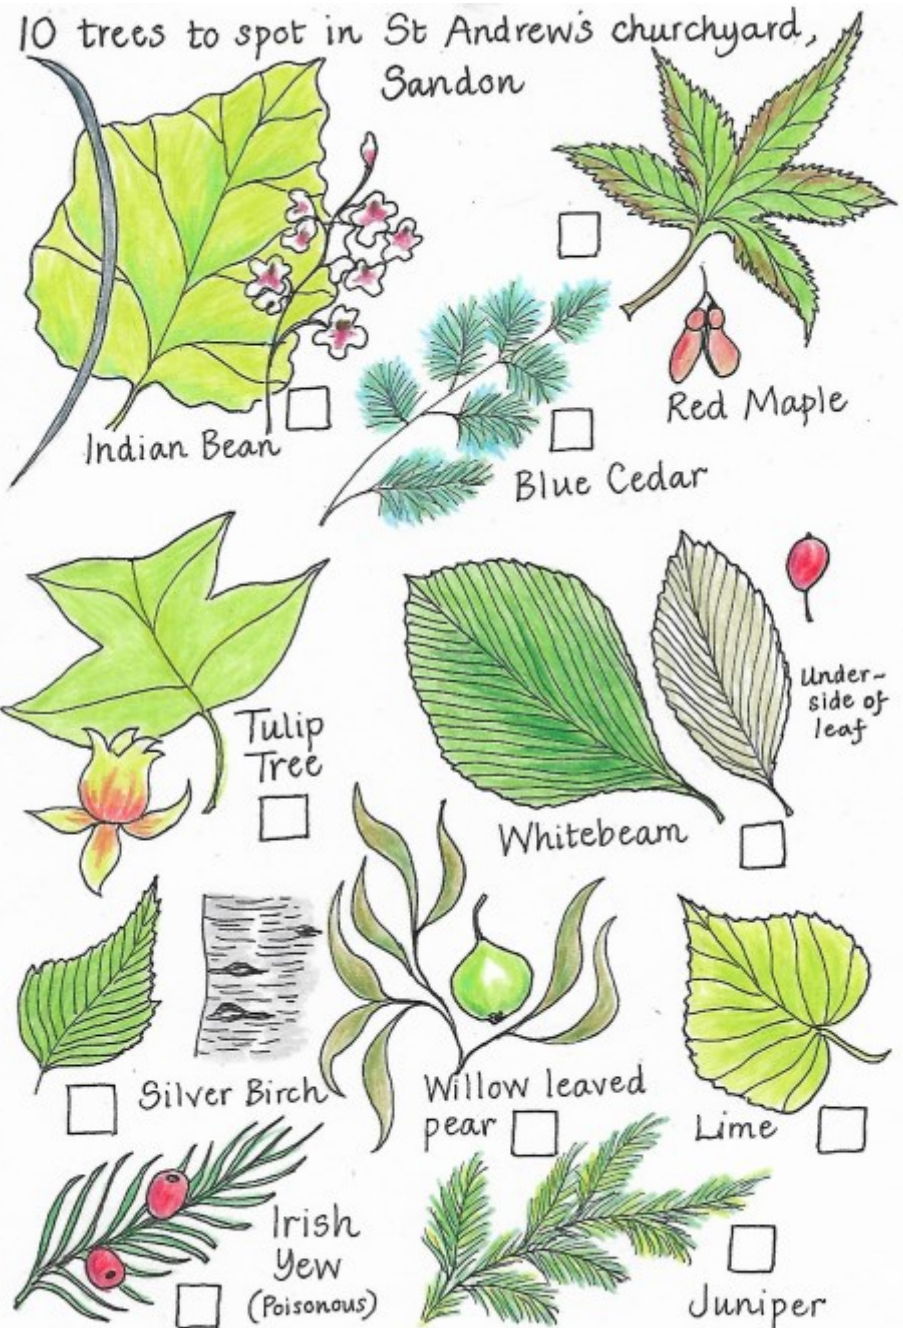 10 trees to spot in St Andrew's churchyard,
Sandon
Indian Bean
Red Maple
Blue Cedar
Tulip
Tree
Whitebeam
Under-
side of
leaf
Silver Birch
Willow leaved
pear
Lime
Irish
Yew
(Poisonous)
Juniper